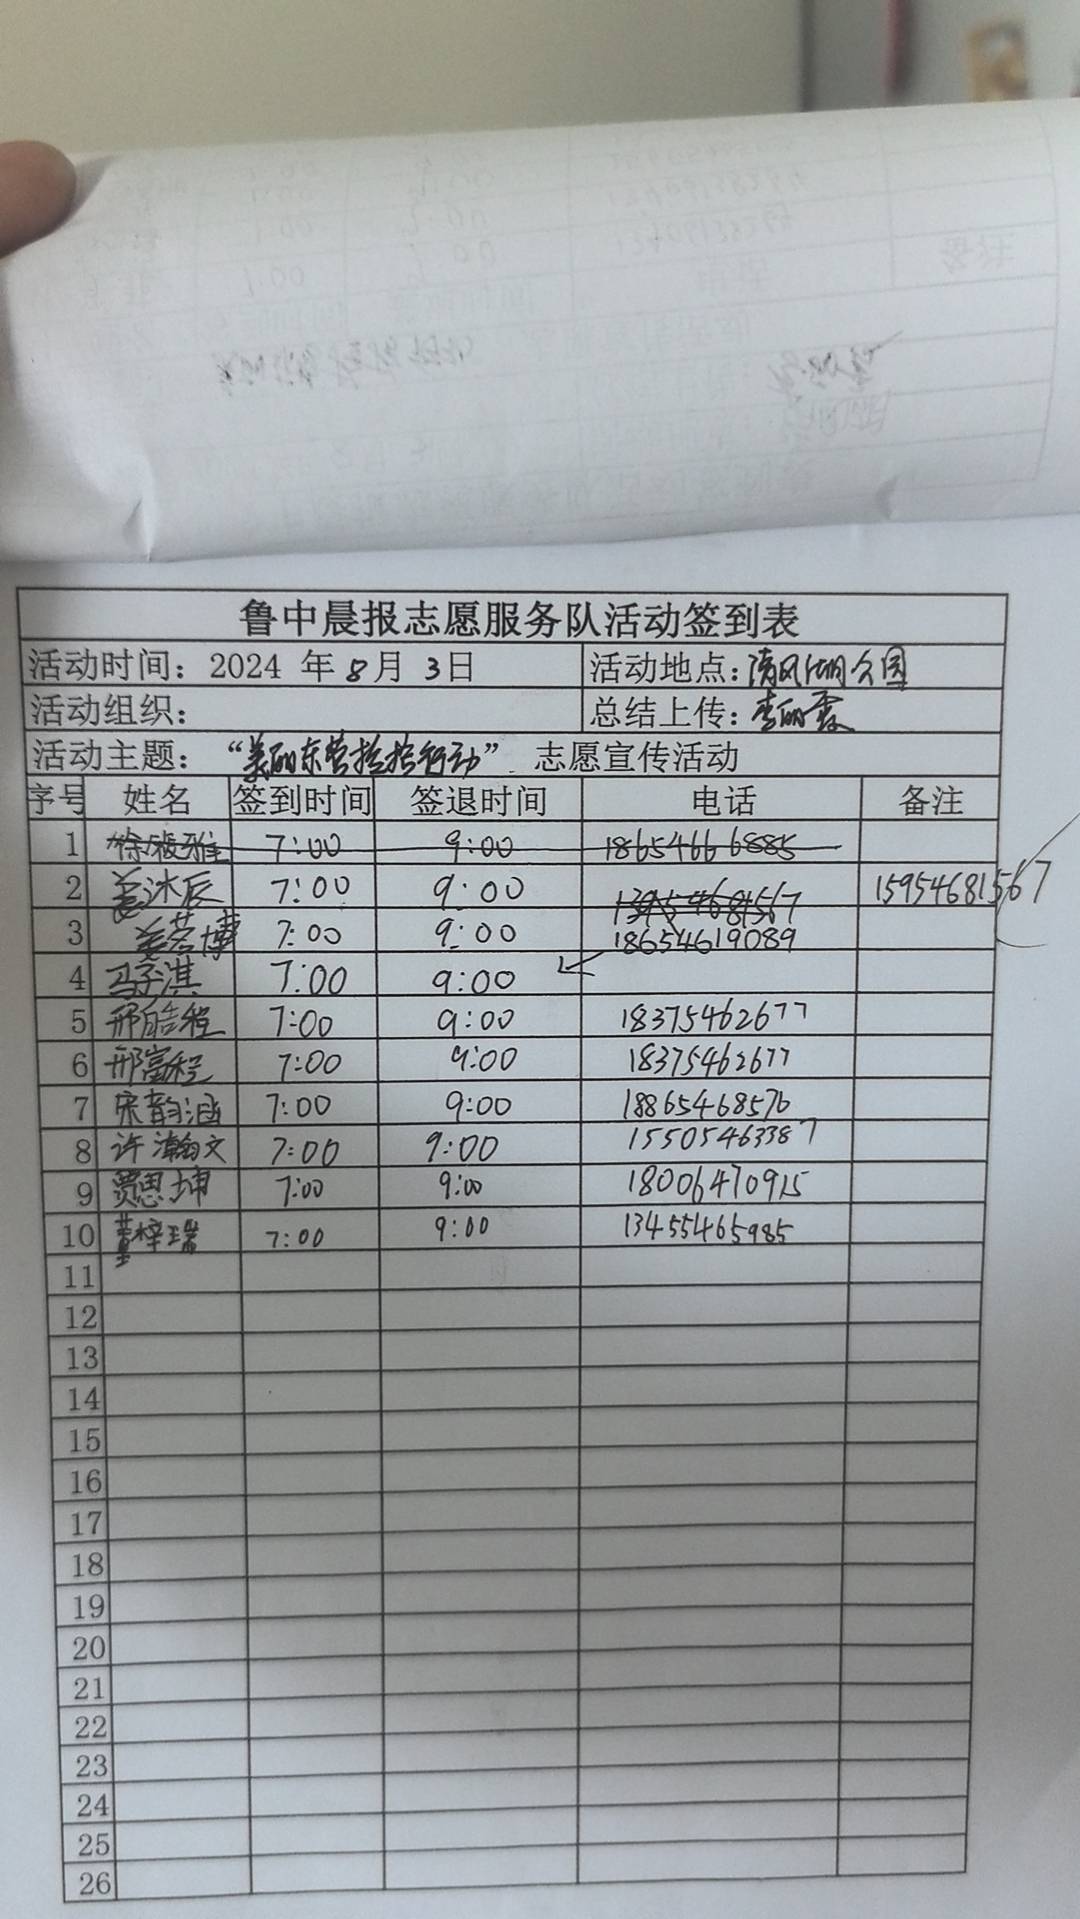 鲁中晨报志愿服务队活动签到表
活动时间：2024 年 8 月 3 日 活动地点：清风湖公园
活动组织： 总结上传：李丽霞
活动主题：“美丽东营捡捡行动” 志愿宣传活动
序号 姓名 签到时间 签退时间 电话 备注
1 徐筱雅 7:00 9:00 18654666885
2 姜沐辰 7:00 9:00 13954681567 15954681567
3 姜茗博 7:00 9:00 18654619089
4 马子淇 7:00 9:00
5 邢皓程 7:00 9:00 18375462677
6 邢富程 7:00 9:00 18375462677
7 宋韵涵 7:00 9:00 18865468576
8 许瀚文 7:00 9:00 15505463387
9 贾思坤 7:00 9:00 18006470915
10 董梓瑞 7:00 9:00 13455465985
11
12
13
14
15
16
17
18
19
20
21
22
23
24
25
26